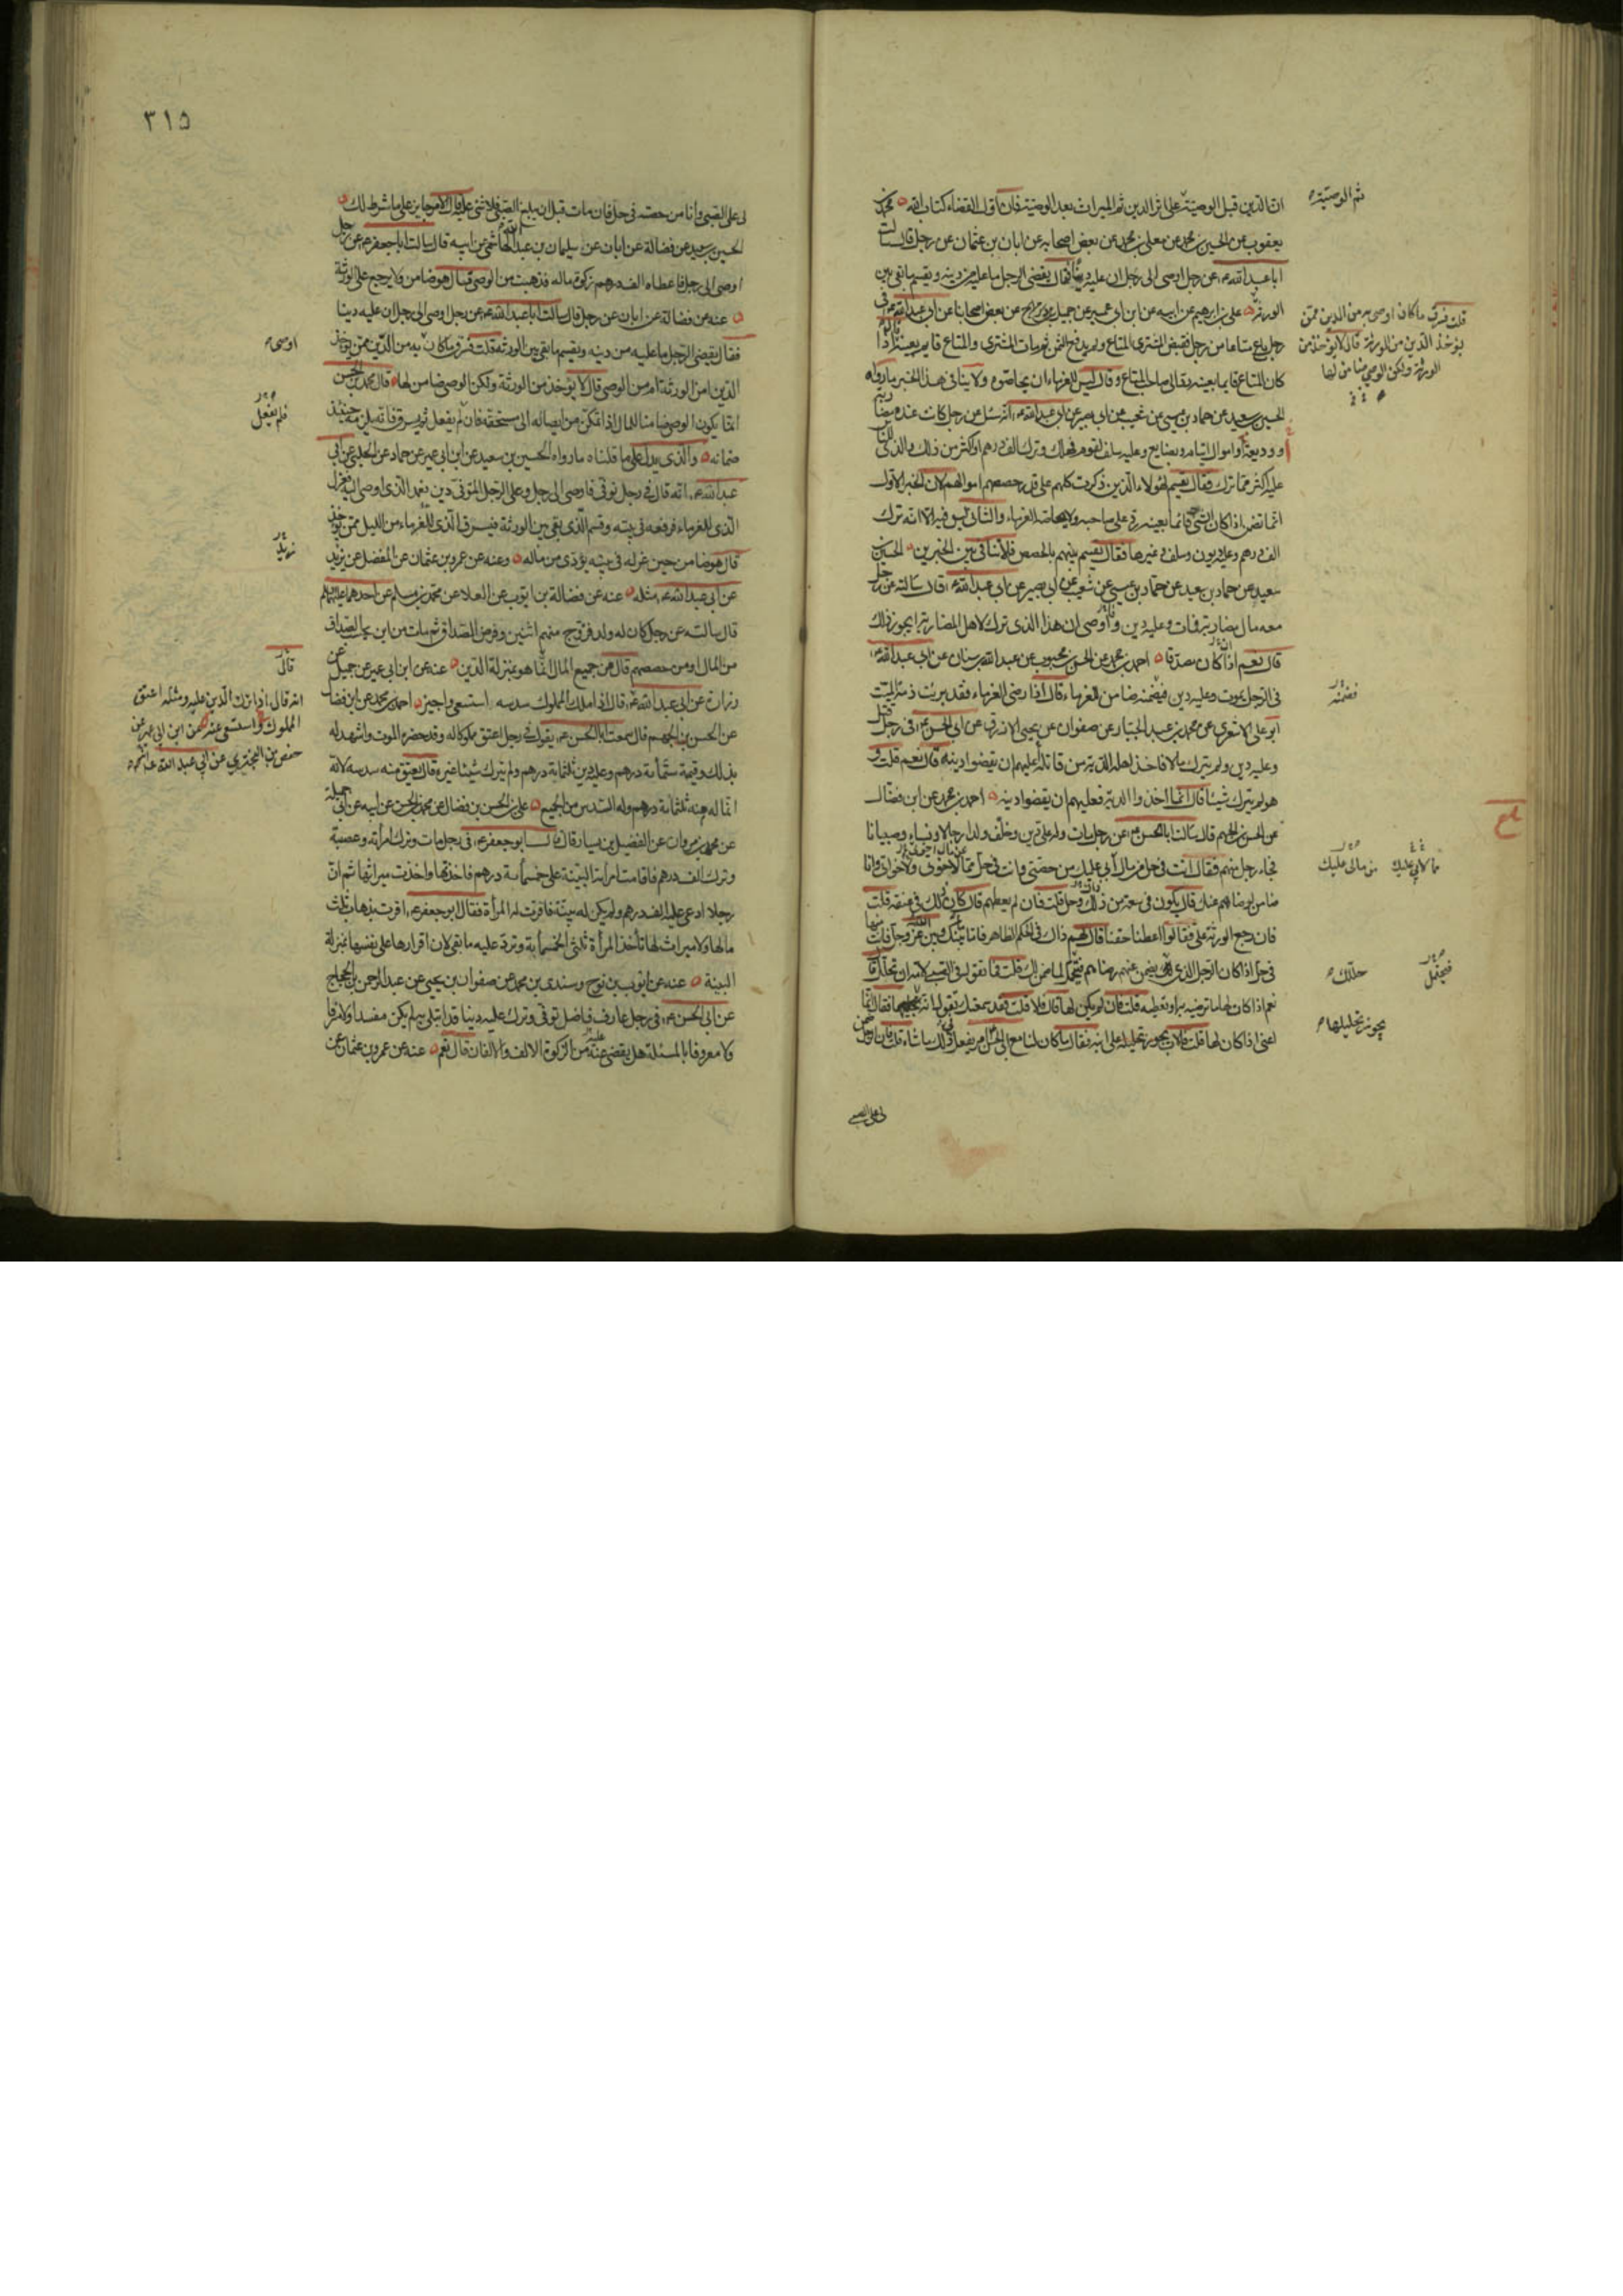 ان الدين قبل الوصية على اثر الدين ثم الميراث بعد الوصية فان اول القضاء كتاب الله محمد بن
يعقوب عن الحسين بن محمد عن معلى بن محمد عن بعض اصحابه عن ابان بن عثمان عن رجل قال سالت
ابا عبد الله ع عن رجل اوصى الى رجل ان عليه دينا فقال يقضى الرجل ما عليه من دينه ويقسم ما بقى بين
الورثة على بن ابراهيم عن ابيه عن ابن ابى عمير عن جميل بن دراج عن بعض اصحابنا عن ابى عبد الله ع فى
رجل باع متاعا من رجل فقبض المشترى المتاع ولم يدفع الثمن ثم مات المشترى والمتاع قايم بعينه قال اذا
كان المتاع قايما بعينه رد الى صاحب المتاع وقال ليس للغرماء ان يحاصوه ولا ينافى هذا الخبر ما رواه
الحسين بن سعيد عن حماد بن عيسى عن شعيب عن ابى بصير عن ابى عبد الله ع انه سئل عن رجل كانت عنده مضاربة
او وديعة او اموال ايتام وبضايع وعليه سلف لقوم فهلك وترك الف درهم او اكثر من ذلك والذى للناس
عليه اكثر مما ترك فقال يقسم لهؤلاء الذين ذكرت كلهم على قدر حصصهم اموالهم لان الخبر الاول
انما تضمن اذا كان الشىء قائما بعينه رد على صاحبه ولا يحاصه الغرماء والثانى ليس فيه الا انه ترك
الف درهم وعليه ديون وسلف وغيرها فقال يقسم بينهم بالحصص فلا تنافى بين الخبرين الحسين بن
سعيد عن حماد بن عيسى عن شعيب عن ابى بصير عن ابى عبد الله ع قال سالته عن رجل
معه مال مضاربة فمات وعليه دين واوصى ان هذا الذى ترك لاهل المضاربة ايجوز ذلك
قال نعم اذا كان مصدقا احمد بن محمد عن الحسن بن محبوب عن عبد الله بن سنان عن ابى عبد الله ع
فى الرجل يموت وعليه دين فيضمنه ضامن للغرماء قال اذا رضى الغرماء فقد برئت ذمة الميت
ابو على الاشعرى عن محمد بن عبد الجبار عن صفوان عن يحيى الازرق عن ابى الحسن ع فى رجل قتل
وعليه دين ولم يترك مالا فاخذ اهله الدية من قاتله اعليهم ان يقضوا دينه قال نعم قلت و
هو لم يترك شيئا قال انما اخذوا الدية فعليهم ان يقضوا دينه احمد بن محمد عن ابن فضال
عن الحسن بن الجهم قال سالت ابا الحسن ع عن رجل مات وله على دين وخلف ولدا رجالا ونساء وصبيانا
فجاء رجل منهم فقال انت فى حل من مال ابى عليك من حصتى وانت فى حل مما لاخوتى واخواتى وانا
ضامن لرضاهم عنك قال يكون فى سعة من ذلك وحل قلت فان لم يعطهم قال كان ذلك فى عنقه قلت
فان رجع الورثة على فقالوا اعطنا حقنا فقال لهم ذاك فى الحكم الظاهر فاما بينك وبين الله عز وجل فانت منها
لى على الصبى
ثم الوصية
قلت فسرق ما كان اوصى به من الدين ممن
يؤخذ الدين من الورثة قال لا يؤخذ من
الورثة ولكن الوصى ضامن لها
فضمنه
ما لابى عليك
من مالى عليك
حللك
يجوز تحليلها
٣١٥
لى على الصبى وانا من حصته فى حل فان مات قبل ان يبلغ الصبى فلا شىء عليه قال الامر جايز على ما شرط لك
الحسين بن سعيد عن فضالة عن ابان عن سليمان بن عبد الله الهاشمى عن ابيه قال سالت ابا جعفر ع عن رجل
اوصى الى رجل فاعطاه الف درهم زكوة ماله فذهبت من الوصى قال هو ضامن ولا يرجع على الورثة
عنه عن فضالة عن ابان عن رجل قال سالت ابا عبد الله ع عن رجل اوصى الى رجل ان عليه دينا
فقال يقضى الرجل ما عليه من دينه ويقسم ما بقى بين الورثة قلت فسرق ما كان به من الدين ممن يؤخذ
الدين امن الورثة ام من الوصى قال لا يؤخذ من الورثة ولكن الوصى ضامن لها قال محمد بن الحسن
انما يكون الوصى ضامنا للمال اذا تمكن من ايصاله الى مستحقه فان لم يفعل ثم يسرق فانه يلزمه حينئذ
ضمانه والذى يدل على ما قلناه ما رواه الحسين بن سعيد عن ابن ابى عمير عن حماد عن الحلبى عن ابى
عبد الله ع انه قال فى رجل توفى فاوصى الى رجل وعلى الرجل المتوفى دين فعمد الذى اوصى اليه فعزل
الذى للغرماء فرفعه فى بيته وقسم الذى بقى بين الورثة فيسرق الذى للغرماء من الليل ممن يؤخذ
قال هو ضامن حين عزله فى بيته يؤدى من ماله وعنه عن عمرو بن عثمان عن المفضل عن يزيد
عن ابى عبد الله ع مثله عنه عن فضالة بن ايوب عن العلا عن محمد بن مسلم عن احدهما عليهما السلم
قال سالته عن رجل كان له ولد فزوج منهم اثنين وفرض الصداق ثم مات من اين يحسب الصداق
من المال او من حصصهم قال من جميع المال انما هو بمنزلة الدين عنه عن ابن ابى عمير عن جميل عن
زرارة عن ابى عبد الله ع قال اذا ملك المملوك سدسه استسعى واجيز احمد بن محمد عن ابن فضال
عن الحسن بن الجهم قال سمعت ابا الحسن ع يقول فى رجل اعتق مملوكا له وقد حضره الموت واشهد له
بذلك وقيمة ستمائة درهم وعليه دين ثلثمائة درهم ولم يترك شيئا غيره قال يعتق منه سدسه لانه
انما له منه ثلثمائة درهم وله السدس من الجميع على بن الحسن بن فضال عن محمد بن الحسن عن ابيه عن ابى جميلة
عن محمد بن مروان عن الفضيل بن يسار قال قال ابو جعفر ع فى رجل مات وترك امرأته وعصبة
وترك الف درهم فاقامت امرأته البينة على خمسمائة درهم فاخذتها واخذت ميراثها ثم ان
رجلا ادعى عليه الف درهم ولم يكن له بينة فاقرت له المرأة فقال ابو جعفر ع اقرت بذهاب ثلث
مالها ولا ميراث لها تأخذ المرأة ثلثى الخمسمائة وترد عليه ما بقى لان اقرارها على نفسها بمنزلة
البينة عنه عن ايوب بن نوح وسندى بن محمد عن صفوان بن يحيى عن عبد الرحمن بن الحجاج
عن ابى الحسن ع فى رجل عارف فاضل توفى وترك عليه دينا قد ابتلى به لم يكن مفسدا ولا مسرفا
ولا معروفا بالمسئلة هل يقضى عنه من الزكوة الالف والالفان قال نعم عنه عن عمرو بن عثمان عن
اوصى
فلم يفعل
يزيد
قال
انه قال اذا ترك الدين عليه ومثله اعتق
المملوك واستسعى عنه عن ابن ابى عمير عن
حفص بن البخترى عن ابى عبد الله ع